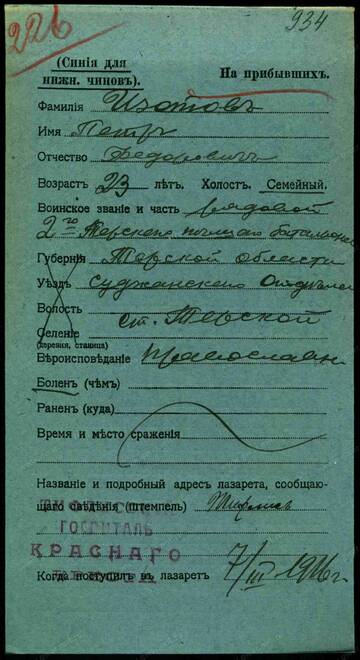 226
934
(Синія для
нижн. чиновъ).
На прибывшихъ.
Фамилія Изотовъ
Имя Петръ
Отчество Ѳедоровичъ
Возрастъ 23 лѣтъ. Холостъ. Семейный.
Воинское званіе и часть рядовой
2го Терскаго пѣшаго баталіона
Губернія Терской области
Уѣздъ
Волость ст. Терской
Селеніе
(деревня, станица)
Вѣроисповѣданіе православн
Боленъ (чѣмъ)
Раненъ (куда)
Время и мѣсто сраженія
Названіе и подробный адресъ лазарета, сообщаю-
щаго свѣдѣнія (штемпель) Тифлисъ
ГОСПИТАЛЬ
КРАСНАГО
Когда поступилъ въ лазаретъ 7/III 1916 г.